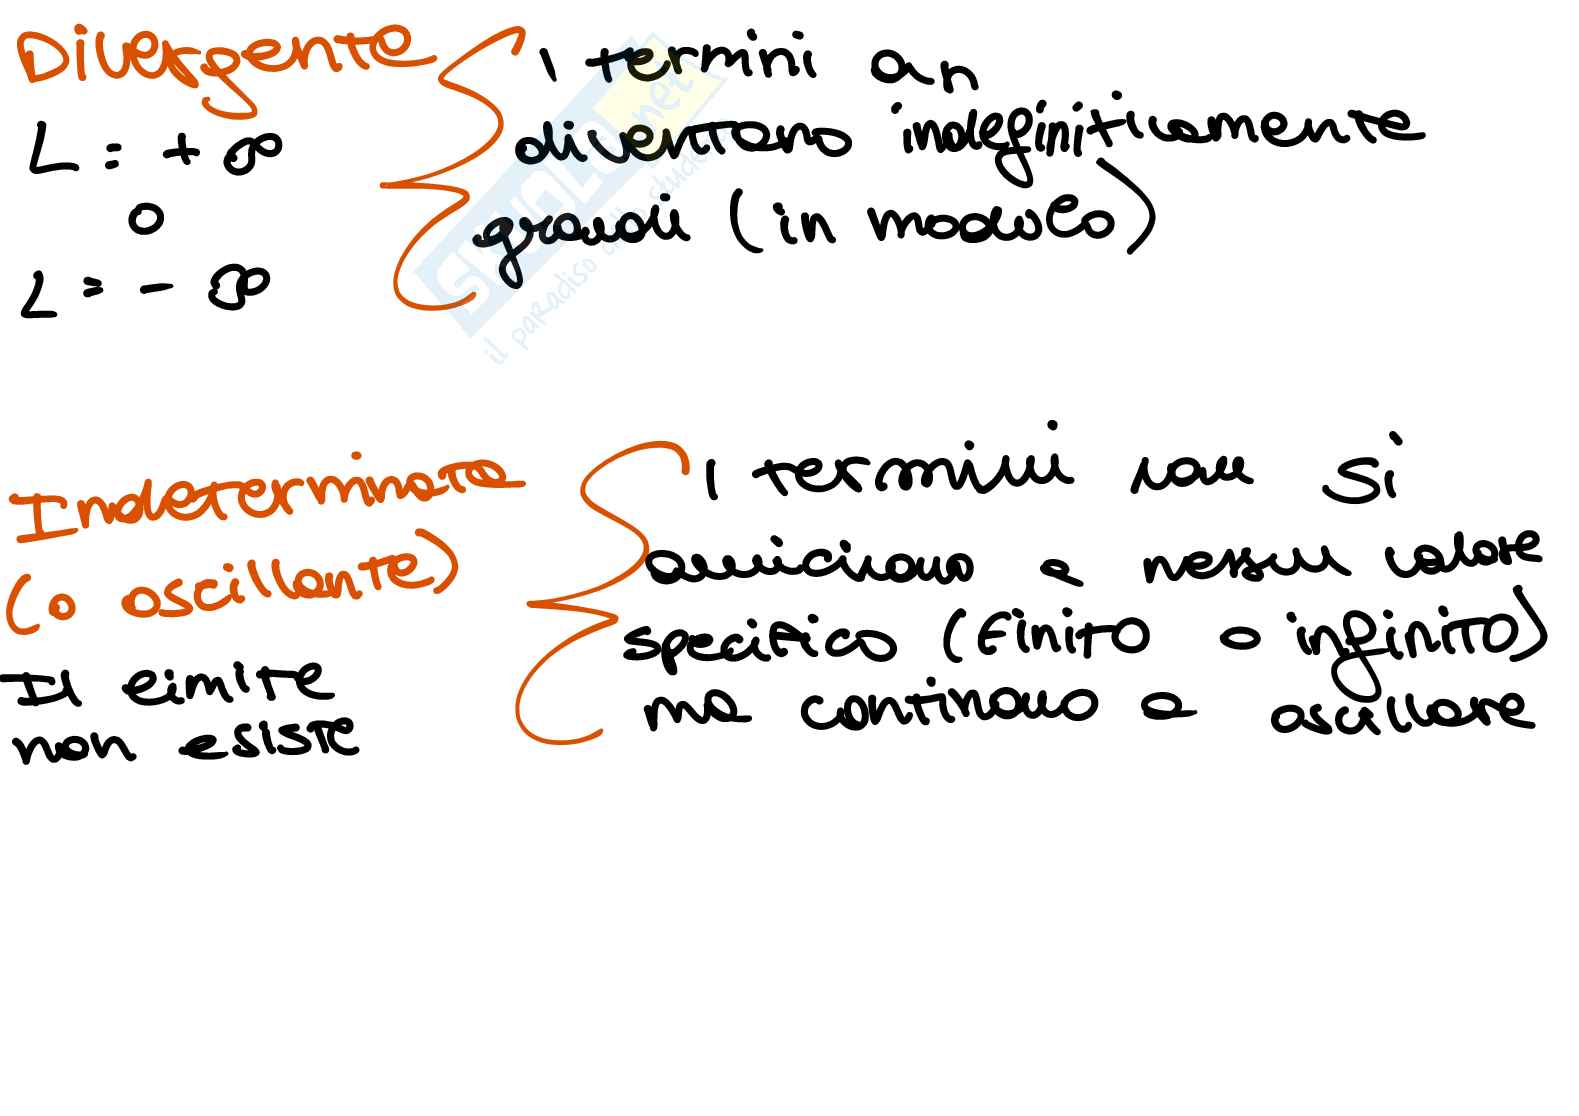 Divergente
L = +∞
o
L = -∞
I termini an
diventano indefinitivamente
grandi (in modulo)
Indeterminata
(o oscillante)
Il limite
non esiste
I termini non si
avvicinano a nessun valore
specifico (finito o infinito)
ma continuano a oscillare
SKUOLA.net
il paradiso dello studente